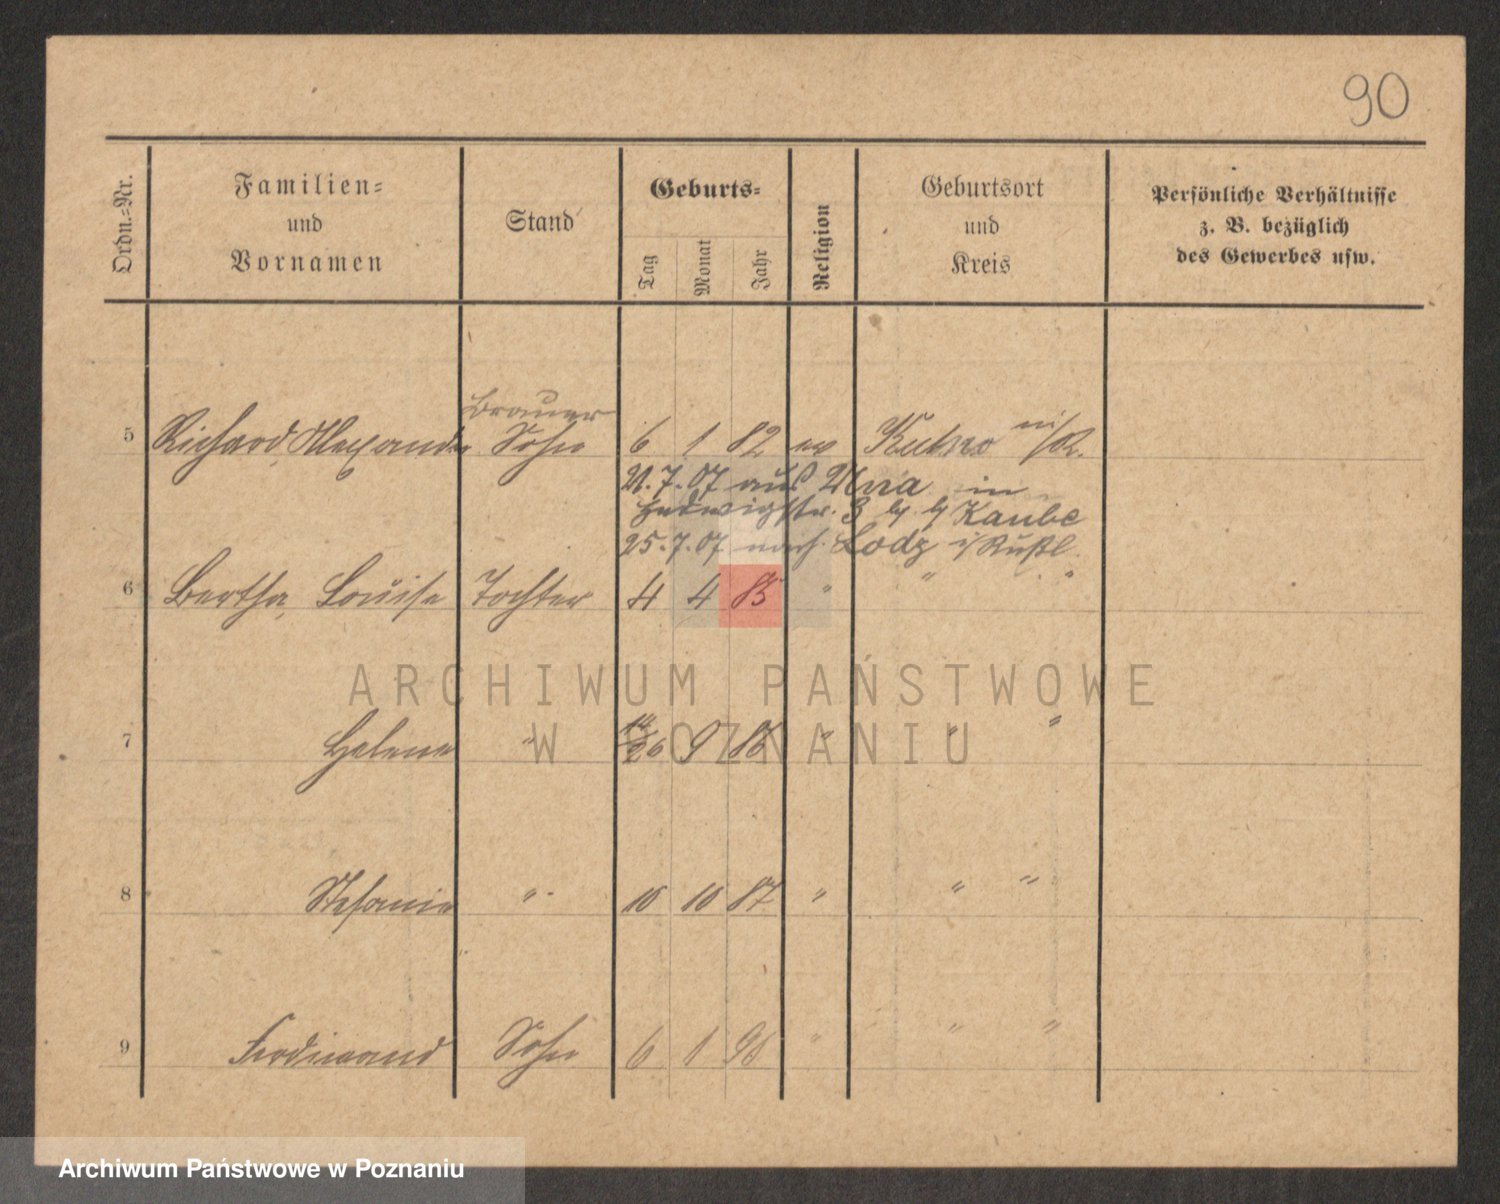 90
Ordn.-Nr.
Familien-
und
Vornamen
Stand
Geburts-
Tag
Monat
Jahr
Religion
Geburtsort
und
Kreis
Persönliche Verhältnisse
z. B. bezüglich
des Gewerbes usw.
Brauer
5 Richard Alexander Sohn 6 1 82 ev Kutno
21.7.07 aus in
Hedwigstr. 3 b/ Kaube
25.7.07 nach Lodz i/Rußl.
6 Bertha, Louise Tochter 4 4 85 " " "
7 Helene " 26 9 86 " " "
8 Stefanie " 10 10 87 " " "
9 Ferdinand Sohn 6 1 96 " " "
ARCHIWUM PAŃSTWOWE
W POZNANIU
Archiwum Państwowe w Poznaniu